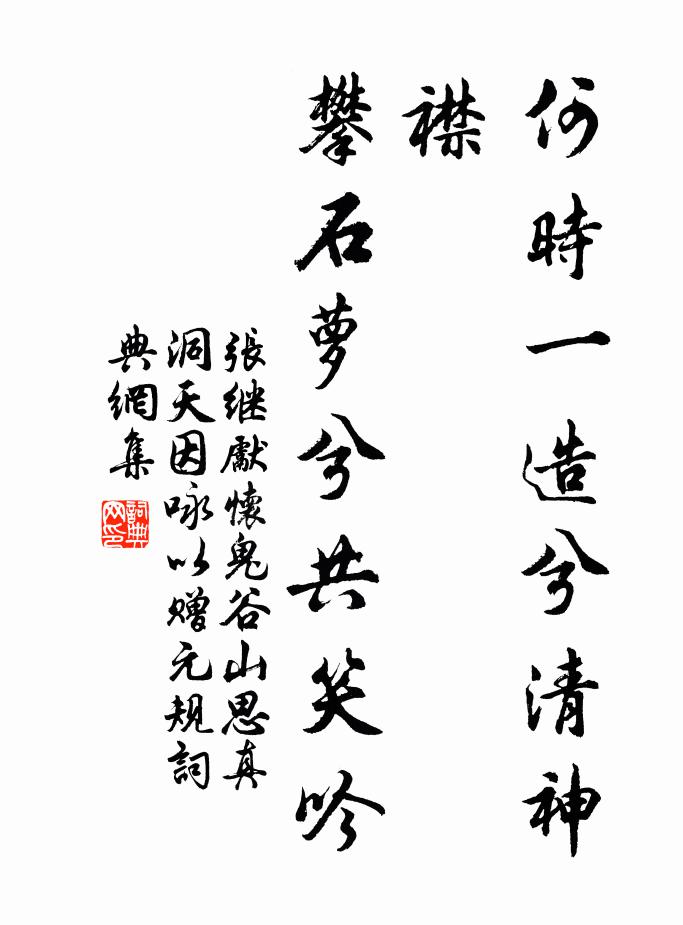 何時一造兮清神
襟
攀石夢兮共笑吟
張继獻懷鬼谷山思真
洞天因咏以赠元规詞
典網集
詞典
网印